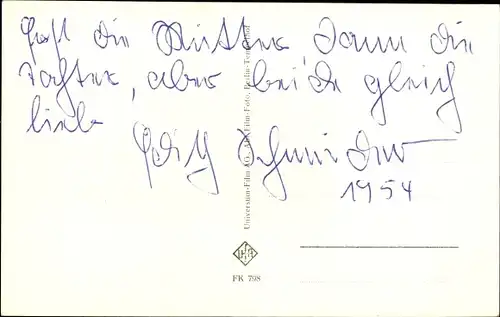 Erst die Mutter dann die
Tochter, aber beide gleich
lieb
Edith Schneider
1954
Universum-Film AG. Film-Foto, Berlin-Tempelhof
FK 798